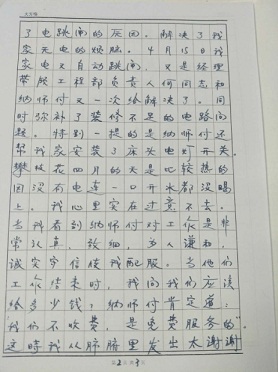 了电跳闸的原因。解决了我
家无电的烦脑。4月15日我
家电又自动跳闸,又是经理
带展工程部负责人何同志和
纳师付又一次给解决了。同
时弥补了装修不足的电路问
题。特别一提的是纳师付还
帮我家安装了床头电灯开关。
攀枝花四月的天是比较热的
因没有电连一口开水都没喝
上。我心里实在过意不去。
当我看到纳师付对工作是非
常认真,敬细,为人谦和,
诚实守信使我配服。当他们
工作结束时,我问我们应该
给多少钱;纳师付肯定道:
“我们不收费,是免费服务的”
这时我从肺腑里发出太谢谢
第2页